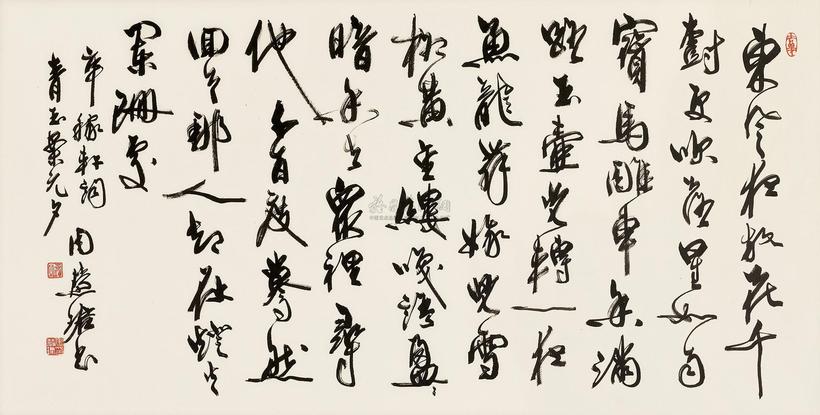 東風夜放花千
樹更吹落星如雨
寶馬雕車香滿
路玉壺光轉一夜
魚龍舞蛾兒雪
柳黃金縷笑語盈〻
暗香去眾裡尋
他千百度驀然
回首那人卻在燈火
闌珊處
辛稼軒詞
青玉案元夕
周慧珺書